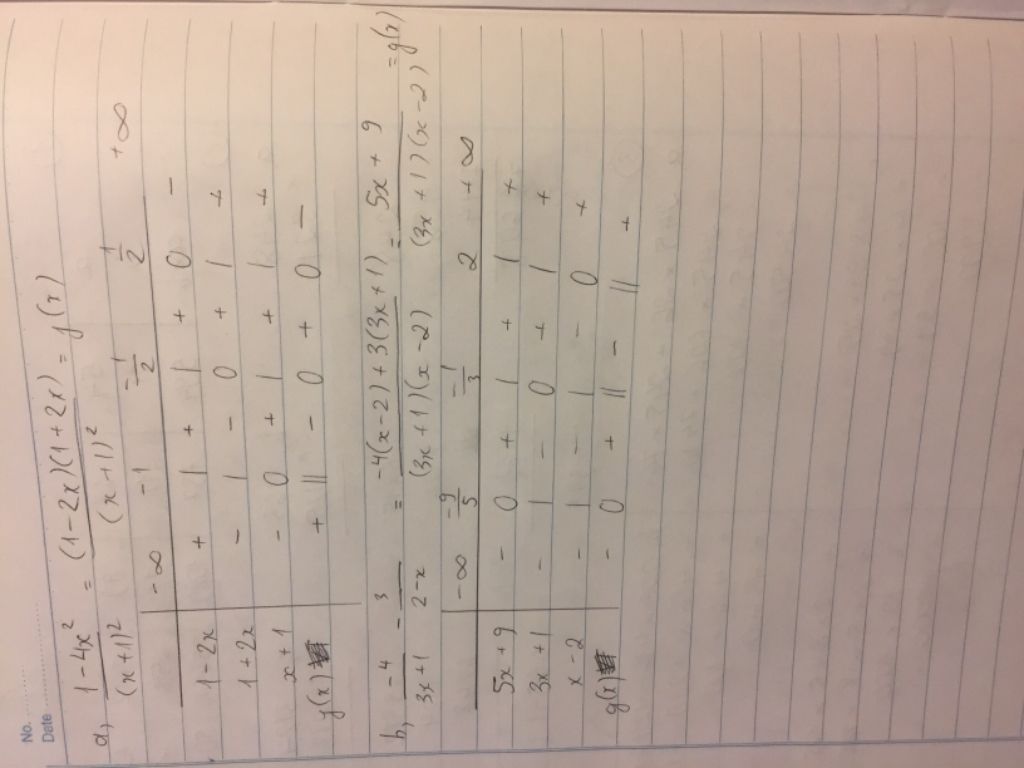 No. ..............
Date ..............
a, (1 - 4x²)/(x+1)² = (1-2x)(1+2x)/(x+1)² = y(x)
-∞ -1 -1/2 1/2 +∞
1-2x + | + | + 0 -
1+2x - | - 0 + | +
x+1 - 0 + | + | +
y(x) + || - 0 + 0 -
b, -4/(3x+1) - 3/(2-x) = (-4(x-2)+3(3x+1))/((3x+1)(x-2)) = (5x+9)/((3x+1)(x-2)) = g(x)
-∞ -9/5 -1/3 2 +∞
5x+9 - 0 + | + | +
3x+1 - | - 0 + | +
x-2 - | - | - 0 +
g(x) - 0 + || - || +